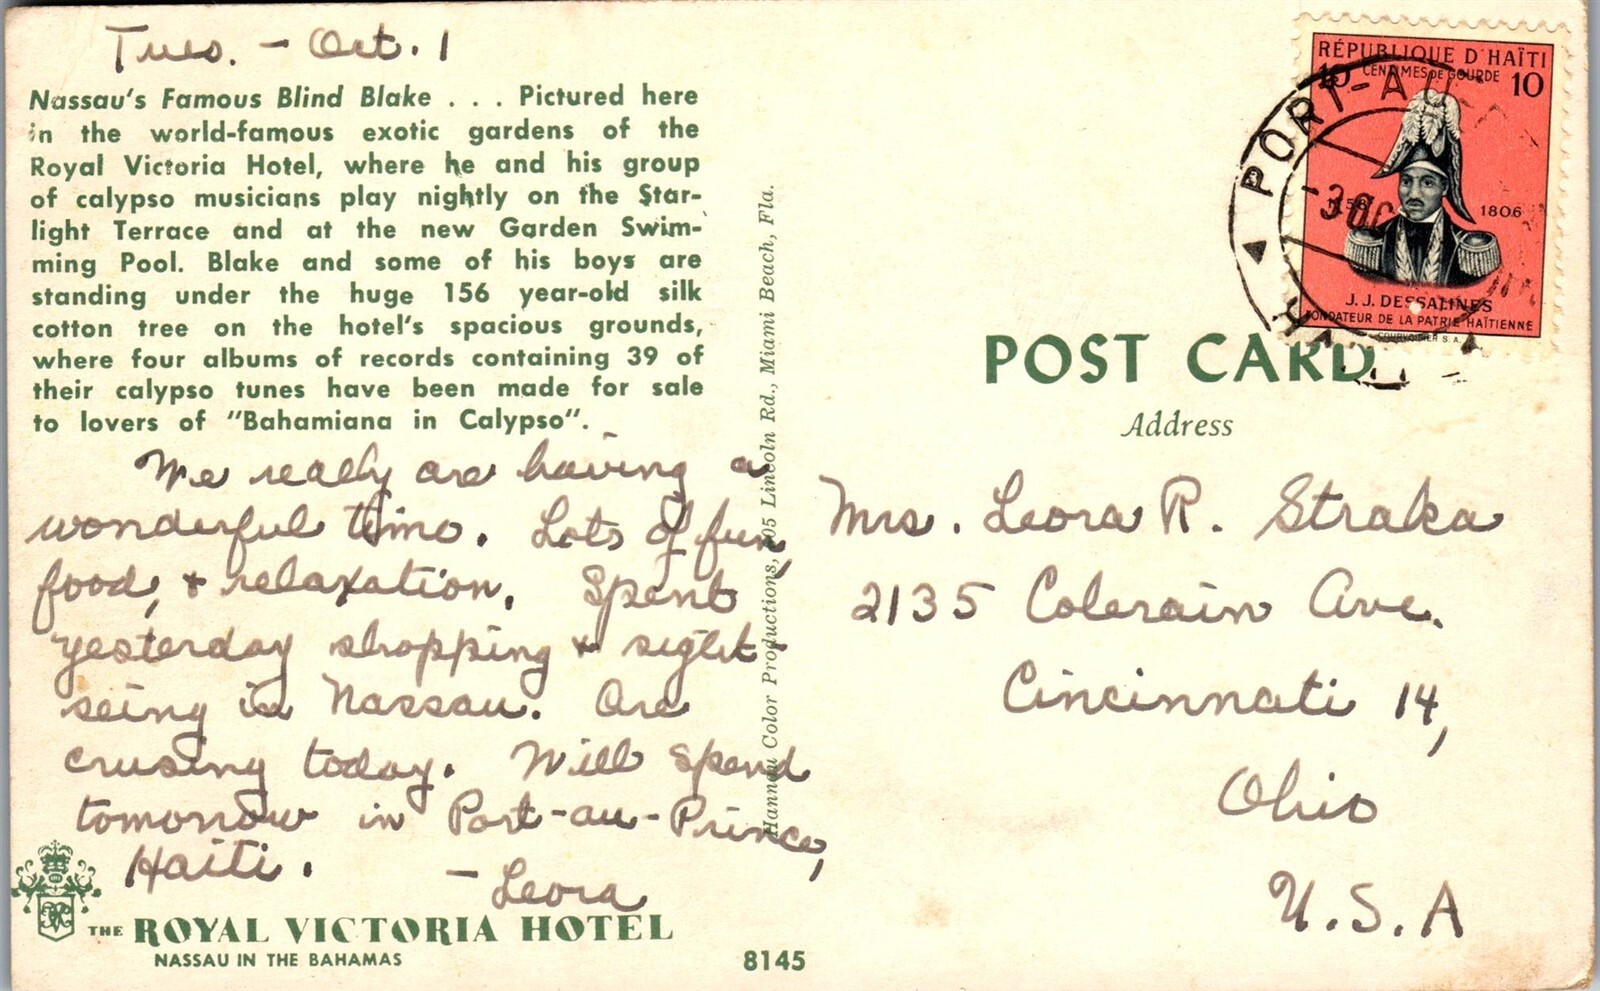 Tues. - Oct. 1
Nassau's Famous Blind Blake . . . Pictured here
in the world-famous exotic gardens of the
Royal Victoria Hotel, where he and his group
of calypso musicians play nightly on the Star-
light Terrace and at the new Garden Swim-
ming Pool. Blake and some of his boys are
standing under the huge 156 year-old silk
cotton tree on the hotel's spacious grounds,
where four albums of records containing 39 of
their calypso tunes have been made for sale
to lovers of "Bahamiana in Calypso".
We really are having a
wonderful time. Lots of fun,
food, + relaxation. Spent
yesterday shopping + sight-
seing in Nassau. Are
crusing today. Will spend
tomorrow in Port-au-Prince,
Haiti.
- Leora
THE ROYAL VICTORIA HOTEL
NASSAU IN THE BAHAMAS
8145
Hannau Color Productions, 605 Lincoln Rd., Miami Beach, Fla.
RÉPUBLIQUE D'HAÏTI
10 CENTIMES DE GOURDE 10
1806
J. J. DESSALINES
FONDATEUR DE LA PATRIE HAÏTIENNE
COURVOISIER S. A.
PORT-AU-
-3 OC
POST CARD
Address
Mrs. Leora R. Straka
2135 Colerain Ave.
Cincinnati 14,
Ohio
U.S.A